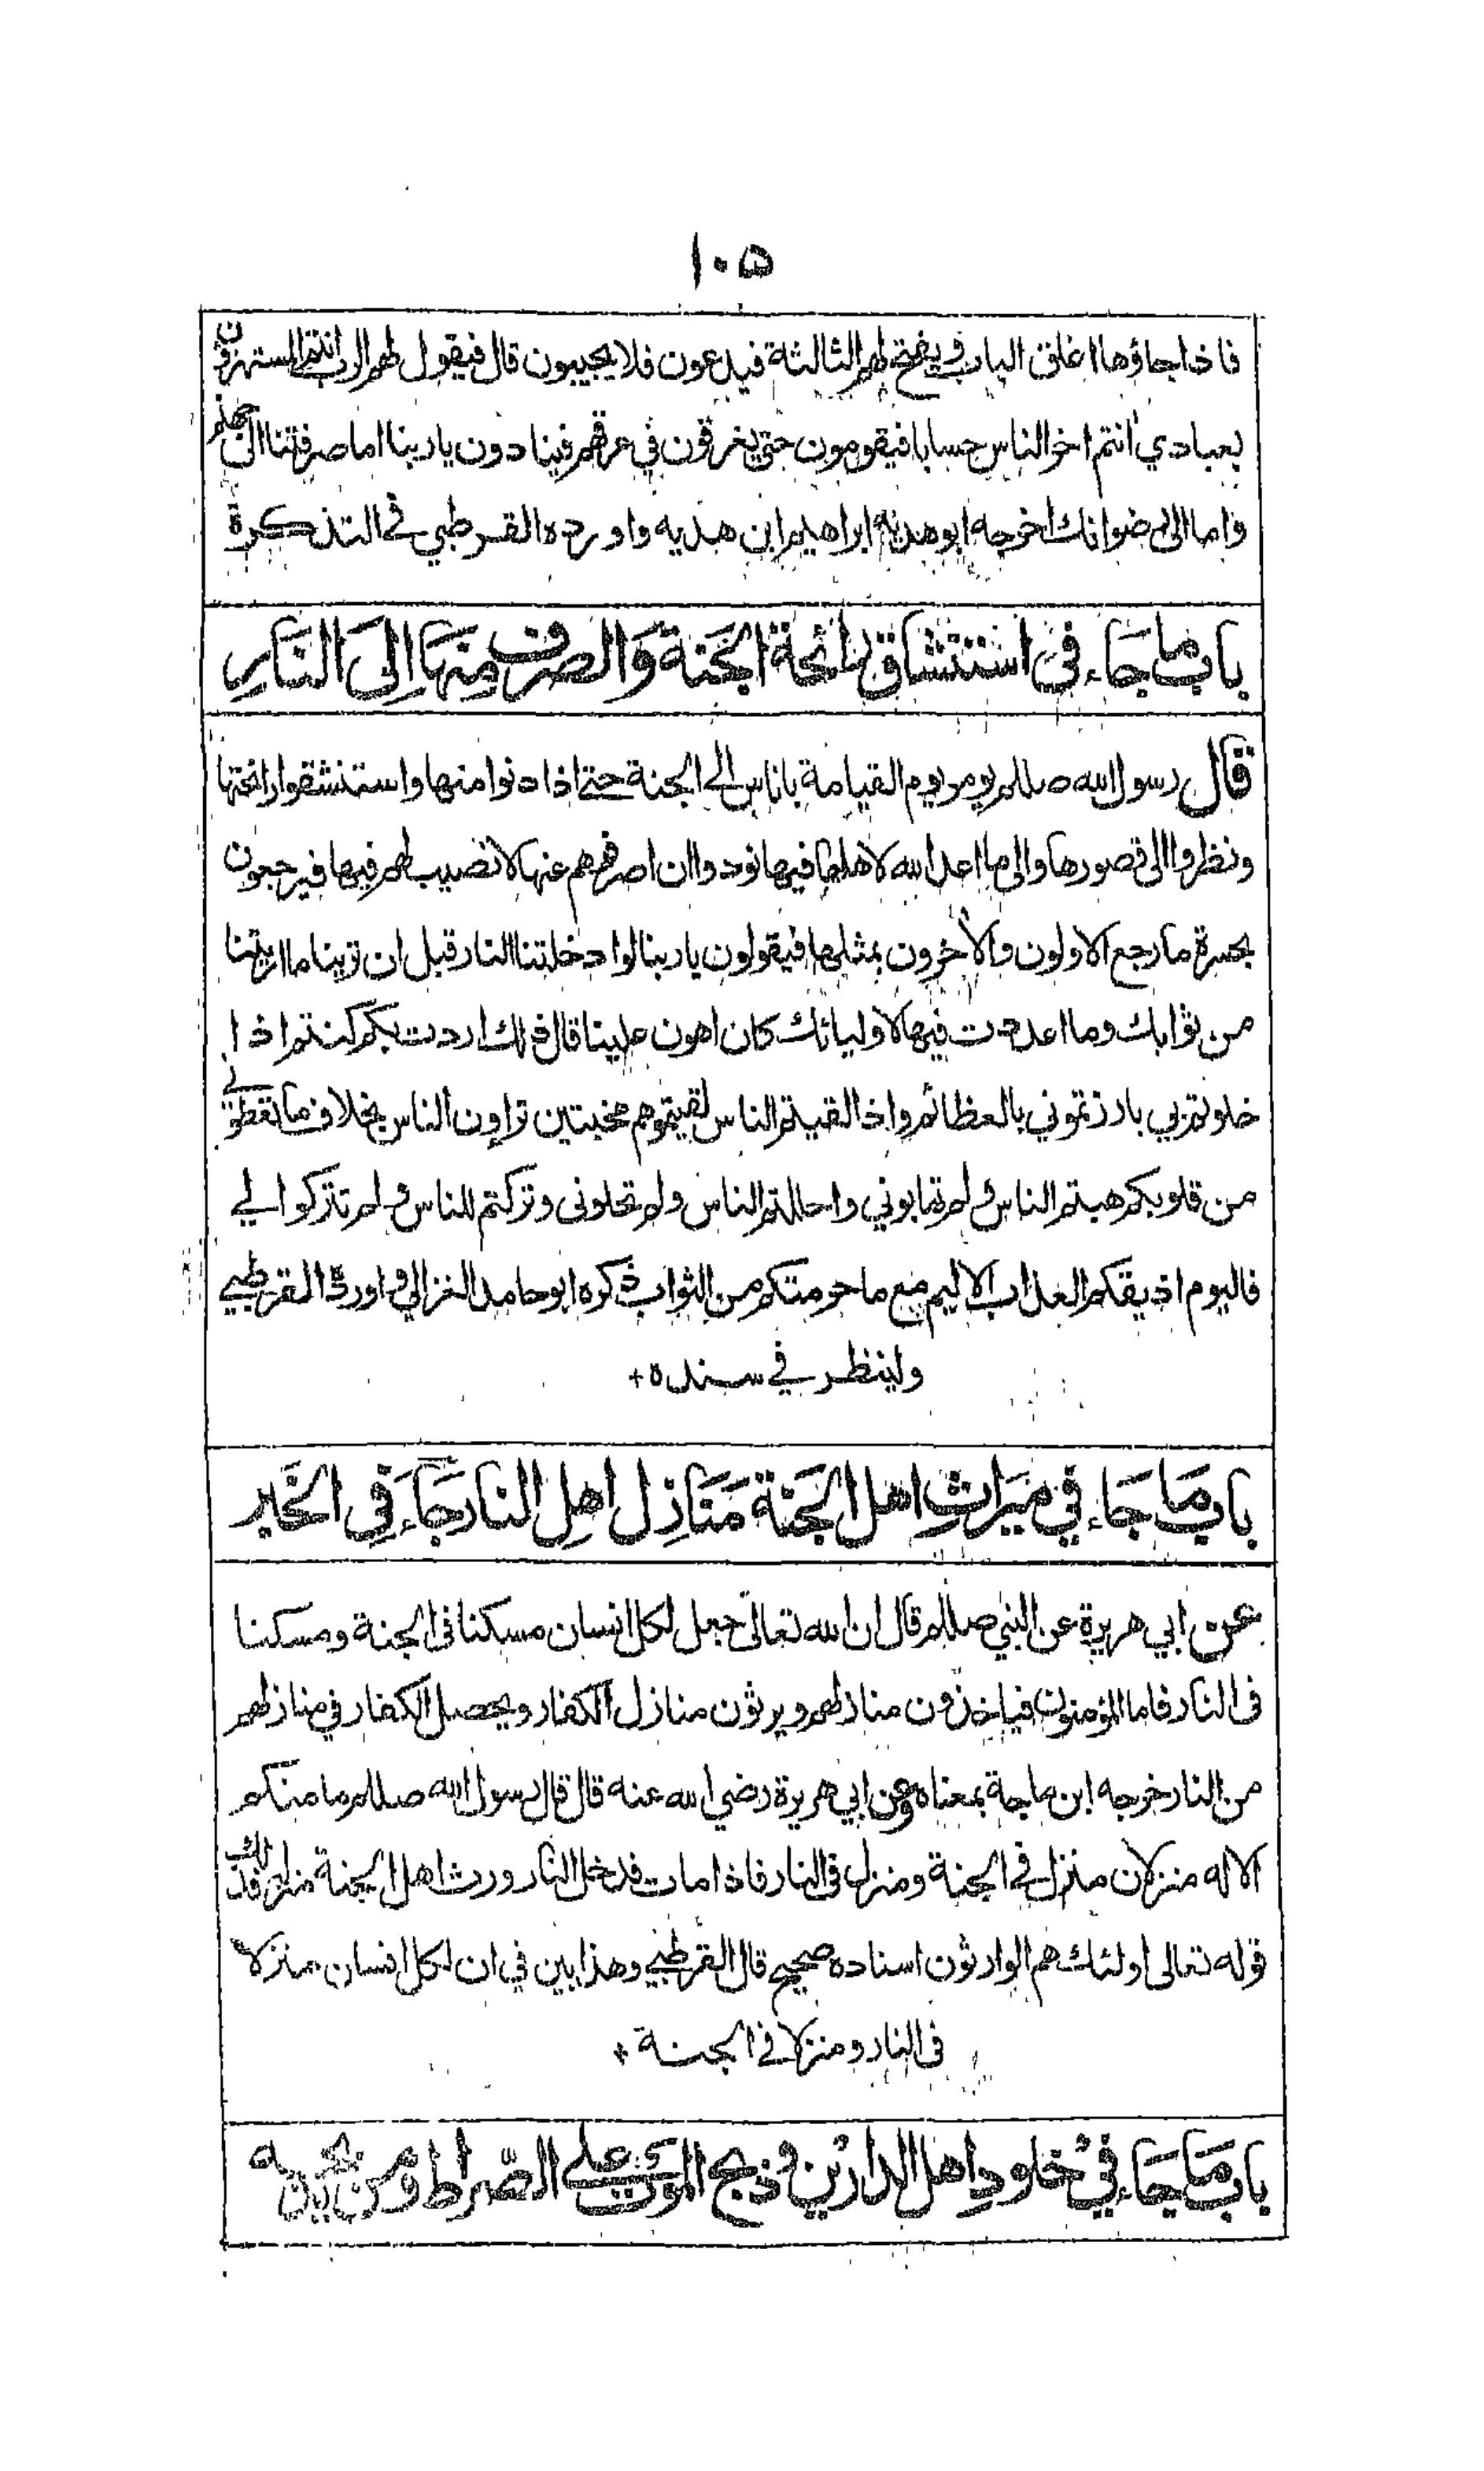 ١٠٥
فاذا جاؤها اغلق الباب ويفتح لهم الثالثة فيدعون فلا يجيبون قال فيقول لهم الرب انتم المستهزؤن
بعبادي انتم اخر الناس حسابا فيقومون حتى يغرقون في عرقهم فينادون يا ربنا اما صرفتنا الى جهنم
واما الى رضوانك اخرجه ابو هدبة ابراهيم ابن هدبه واورده القرطبي في التذكرة
باب ما جاء في استنشاق رائحة الجنة والصرف منها الى النار
قال رسول الله صللم يومر يوم القيامة باناس الى الجنة حتى اذا دنوا منها واستنشقوا رائحتها
ونظروا الى قصورها والى ما اعد الله لاهلها فيها نودوا ان اصرفوهم عنها لا نصيب لهم فيها فيرجعون
بحسرة ما رجع الاولون والآخرون بمثلها فيقولون يا ربنا لو ادخلتنا النار قبل ان ترينا ما اريتنا
من ثوابك وما اعددت فيها لاوليائك كان اهون علينا قال ذلك اردت بكم كنتم اذا
خلوتم بي بارزتموني بالعظائم واذا لقيتم الناس لقيتموهم مخبتين تراون الناس بخلاف ما تعطوني
من قلوبكم هبتم الناس ولم تهابوني واجللتم الناس ولم تجلوني وتركتم للناس ولم تتركوا لي
فاليوم اذيقكم العذاب الاليم مع ما حرمتكم من الثواب ذكره ابو حامد الغزالي واورده القرطبي
ولينظر في سنده +
باب ما جاء في ميراث اهل الجنة منازل اهل النار جاء في الخبر
عن ابي هريرة عن النبي صللم قال ان الله تعالى جعل لكل انسان مسكنا في الجنة ومسكنا
في النار فاما المؤمنون فياخذون منازلهم ويرثون منازل الكفار ويحصل الكفار في منازلهم
من النار خرجه ابن ماجة بمعناه وعن ابي هريرة رضي الله عنه قال قال رسول الله صللم ما منكم
الا له منزلان منزل في الجنة ومنزل في النار فاذا مات فدخل النار ورث اهل الجنة منزله فذلك
قوله تعالى اولئك هم الوارثون اسناده صحيح قال القرطبي وهذا بين في ان لكل انسان منزلا
في النار ومنزلا في الجنة +
باب ما جاء في خلود اهل الدارين وذبح الموت على الصراط ومن